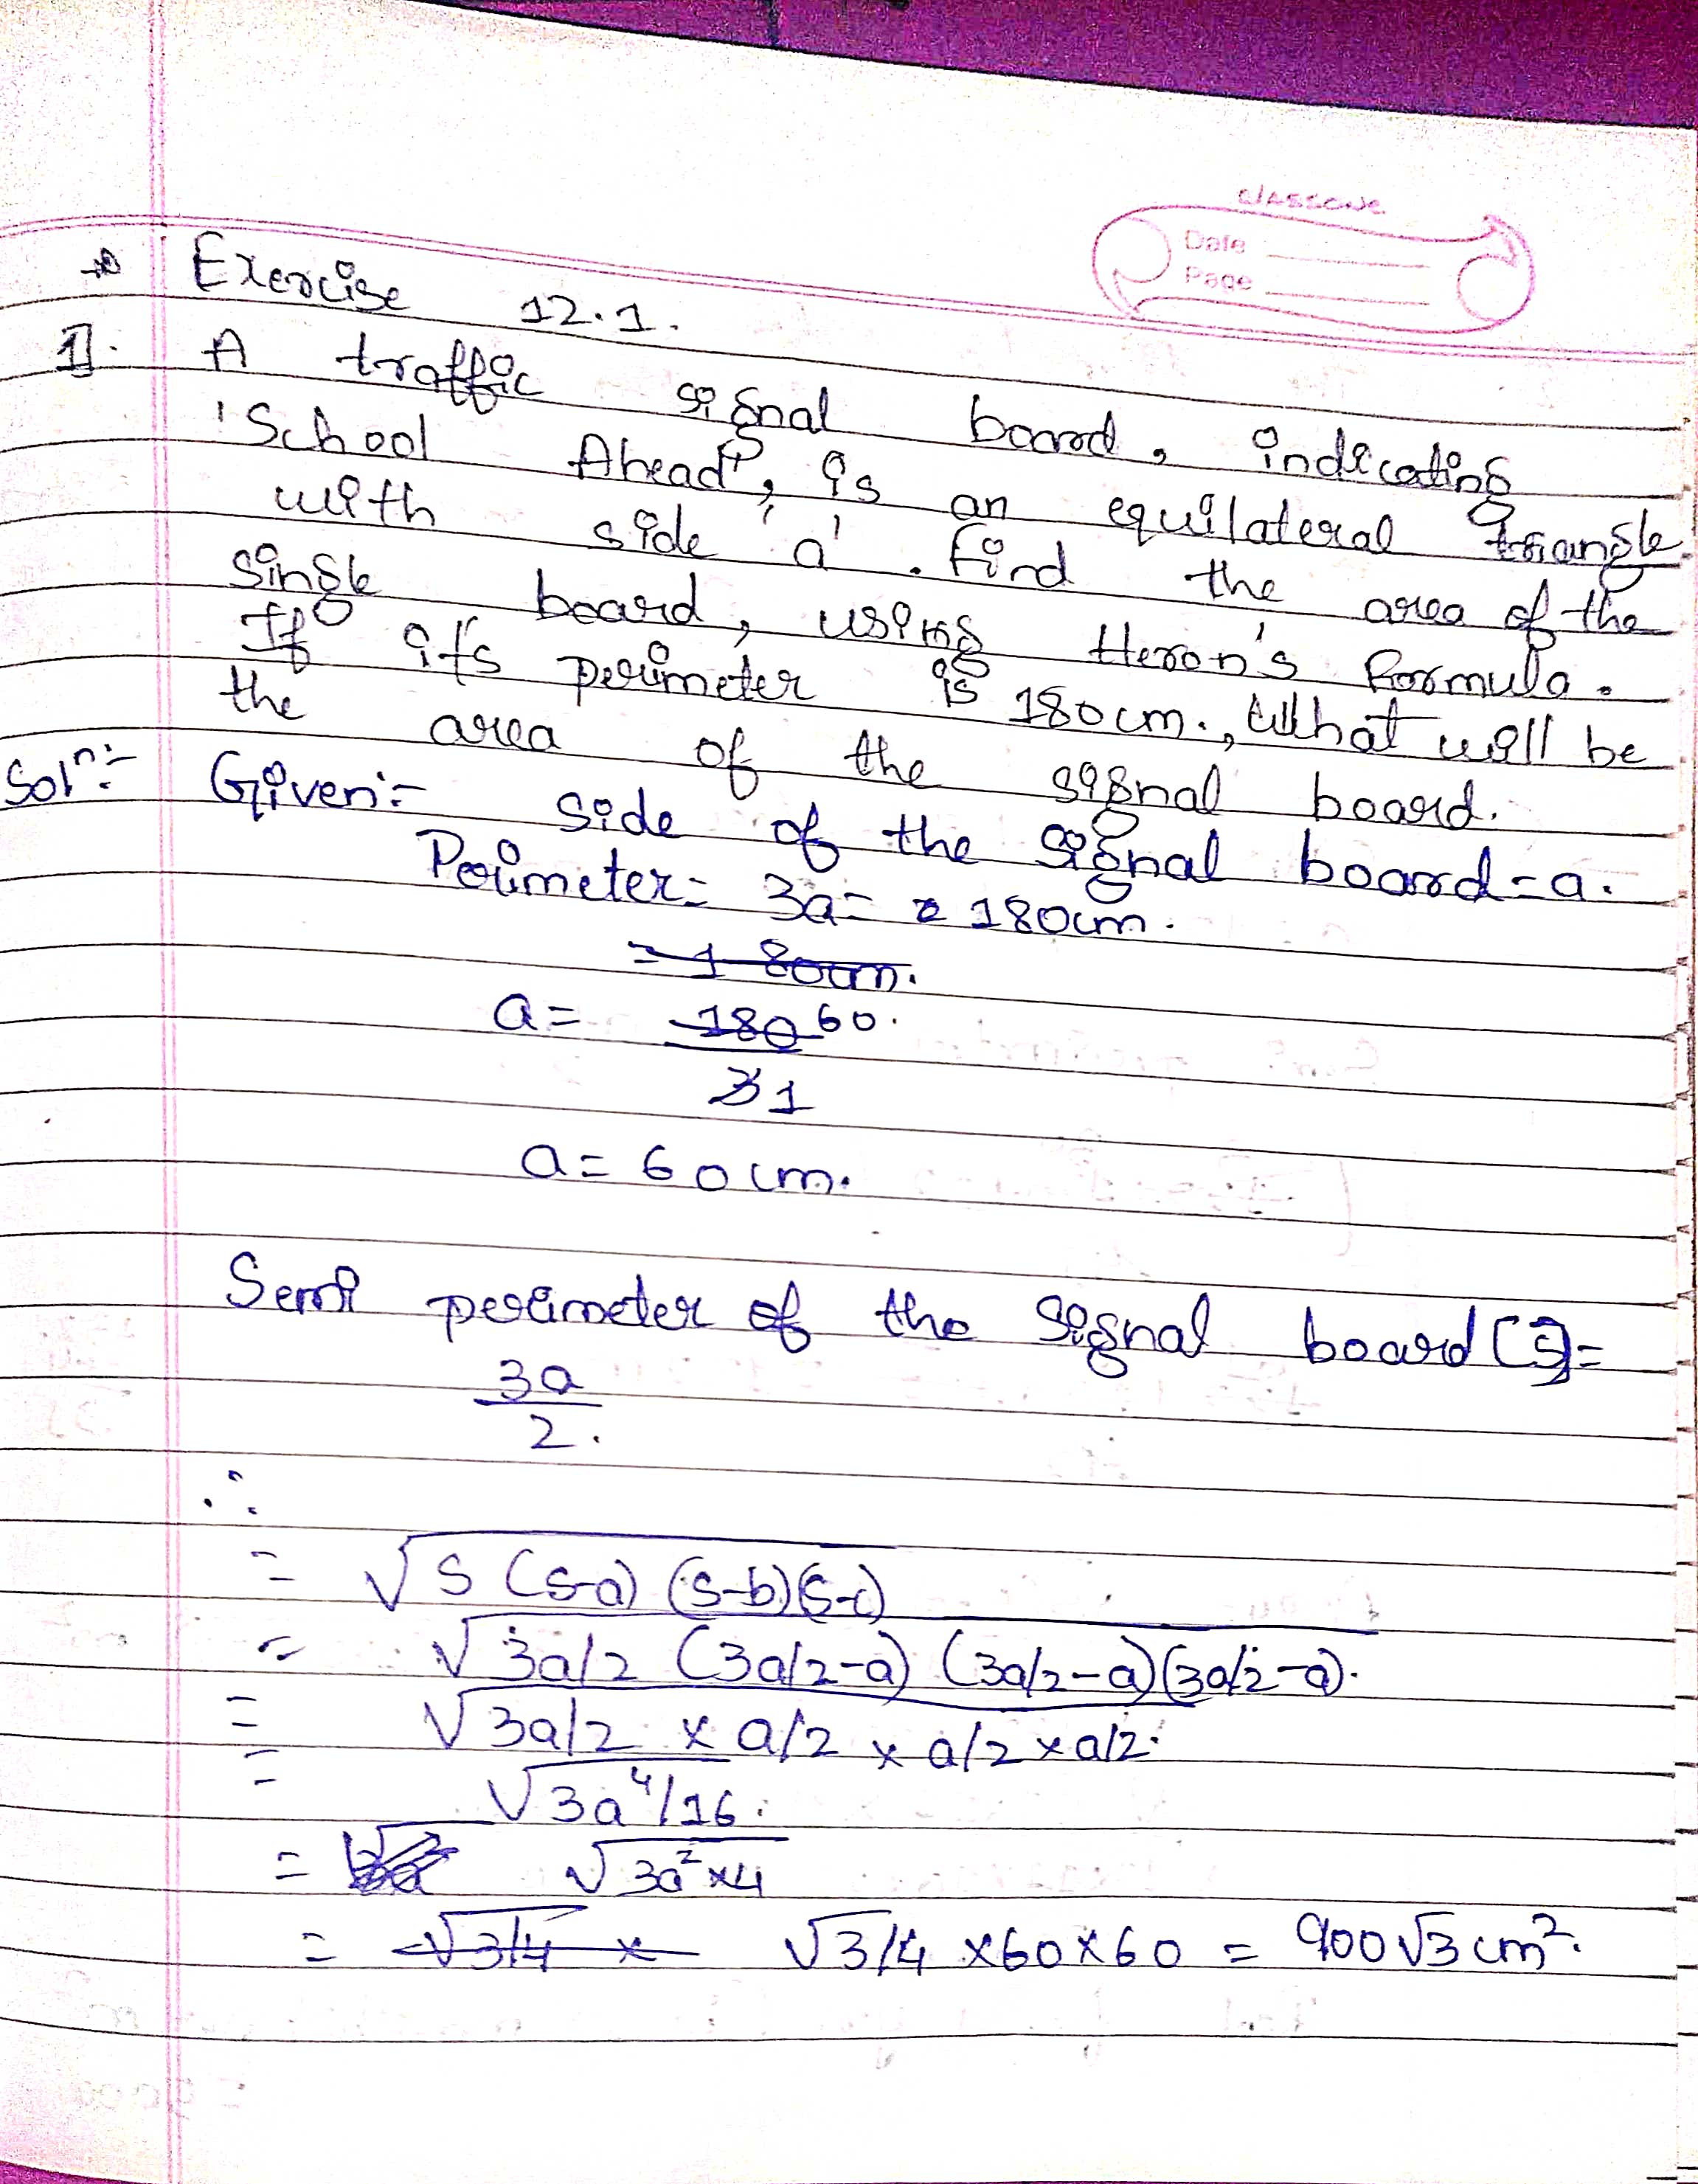 classmate
Date
Page
Exercise 12.1.
1]. A traffic signal board, indicating
'School Ahead', is an equilateral triangle
with side 'a'. Find the area of the
single board, using Heron's formula.
If it's perimeter is 180cm., What will be
the area of the signal board.
Solⁿ:- Given:- Side of the signal board = a.
Perimeter = 3a = 180cm.
= 180cm.
a = 180 60.
3 1
a = 60 cm.
Semi perimeter of the signal board (s) =
3a
2.
∴
= √S (s-a) (s-b)(s-c)
= √3a/2 (3a/2-a) (3a/2-a)(3a/2-a).
= √3a/2 x a/2 x a/2 x a/2.
= √3a⁴/16.
= √3a² x4
= √3/4 x √3/4 x60x60 = 900√3 cm².